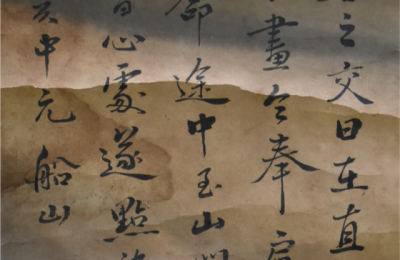 之交日在直
畫今奉
途中至山
心處遂點
中元船山